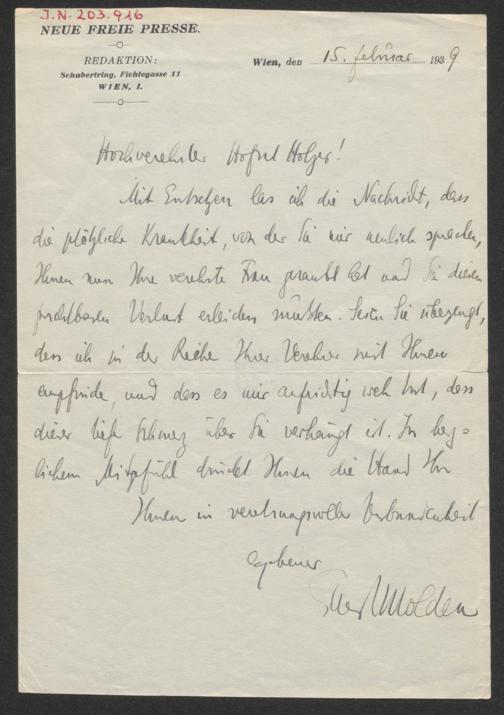 J.N. 203.916
NEUE FREIE PRESSE.
REDAKTION:
Schubertring, Fichtegasse 11
WIEN, I.
Wien, den 15. Februar 1939
Hochverehrter Hofrat Holzer!
Mit Entsetzen las ich die Nachricht, dass
die plötzliche Krankheit, von der Sie mir neulich sprachen,
Ihnen nun Ihre verehrte Frau geraubt hat und Sie diesen
furchtbaren Verlust erleiden mussten. Seien Sie überzeugt,
dass ich in der Reihe Ihrer Verehrer mit Ihnen
empfinde, und dass es mir aufrichtig weh tut, dass
dieser tiefe Schmerz über Sie verhängt ist. In herz=
lichem Mitgefühl drückt Ihnen die Hand Ihr
Ihnen in verehrungsvoller Verbundenheit
ergebener
Ernst Molden